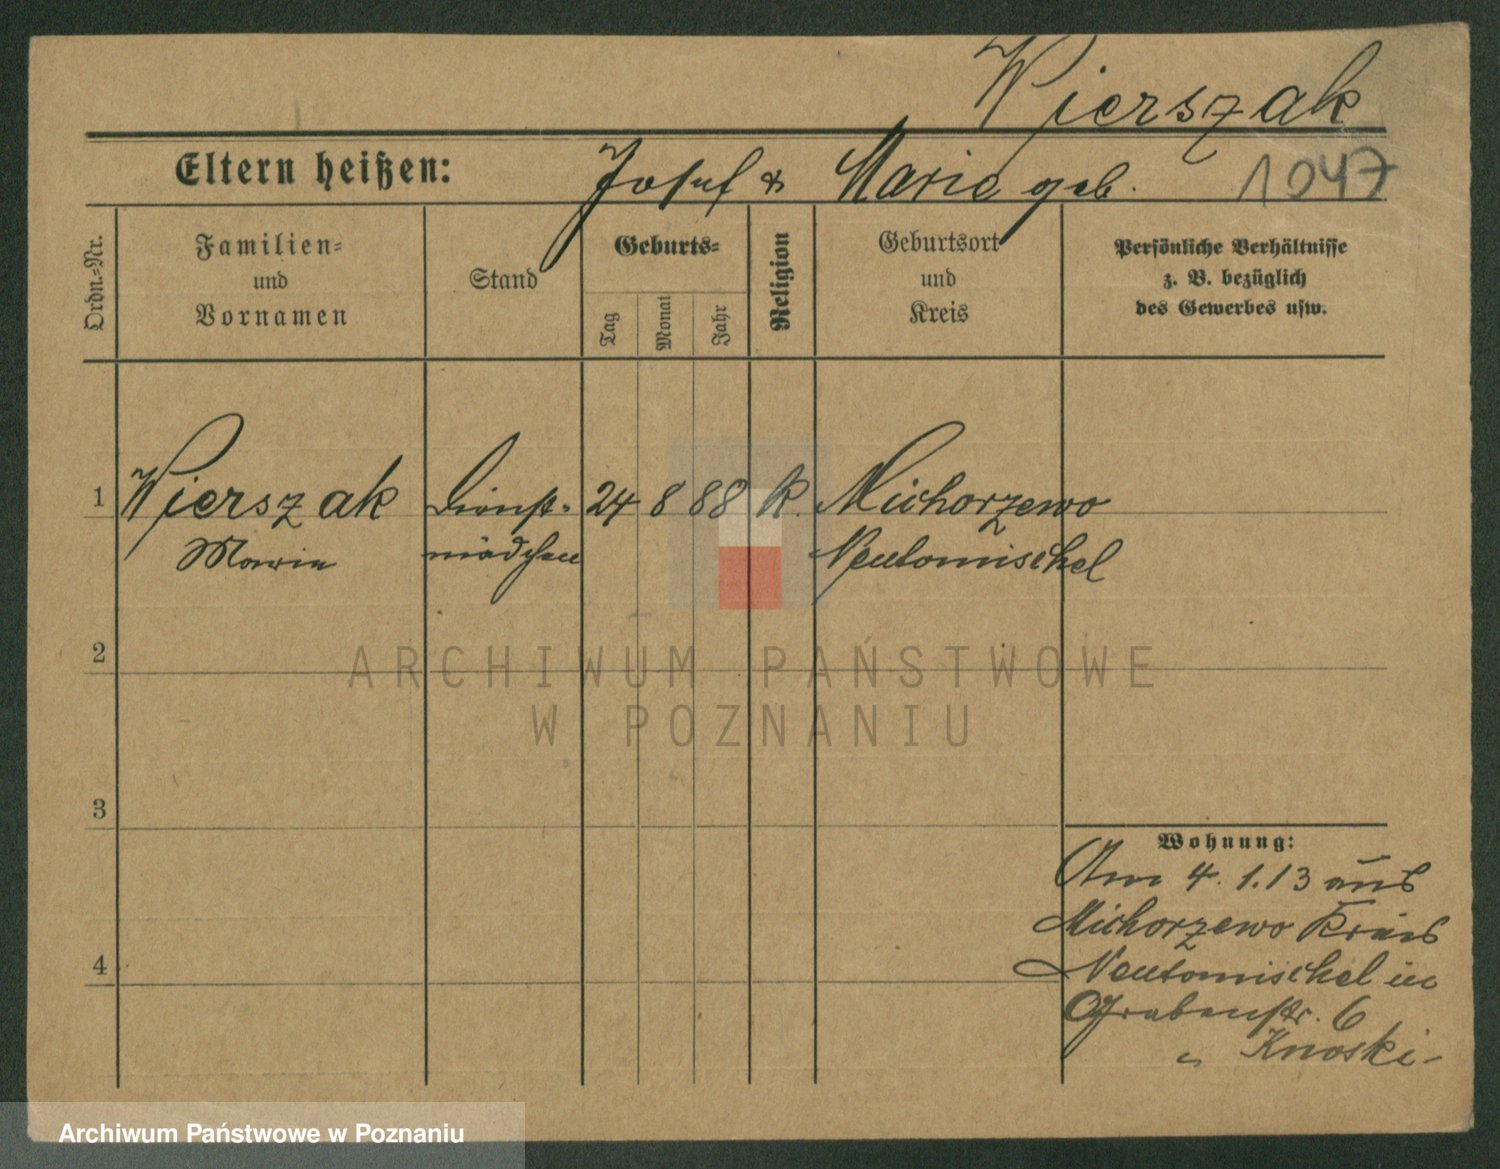 Wierszak
Eltern heißen: Josef & Marie geb.
1047
Ordn.=Nr.
Familien=
und
Vornamen
Stand
Geburts=
Tag
Monat
Jahr
Religion
Geburtsort
und
Kreis
Persönliche Verhältnisse
z. B. bezüglich
des Gewerbes usw.
1 Wierszak Dienst= 24 8 88 k. Michorzewo
Marie mädchen Neutomischel
2
ARCHIWUM PAŃSTWOWE
W POZNANIU
3
Wohnung:
Am 4. 1.13 aus
Michorzewo Kreis
4
Neutomischel in
Grabenstr. 6
Knoski-
Archiwum Państwowe w Poznaniu